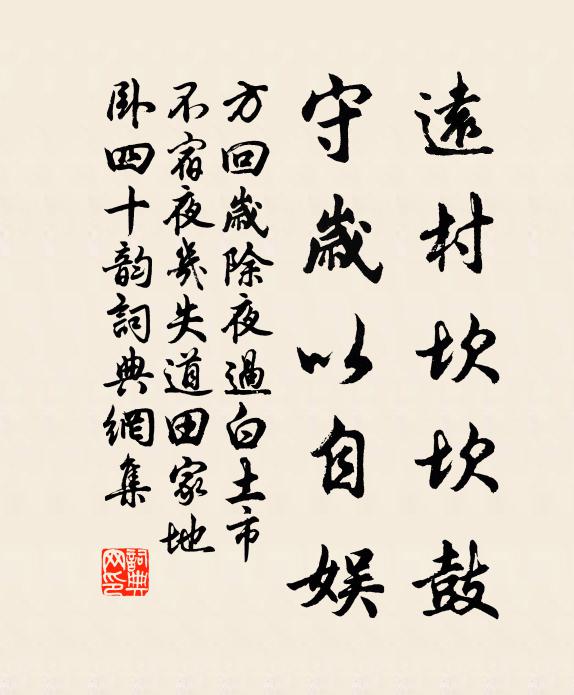 遠村坎坎鼓
守歲以自娛
方回歲除夜過白土市
不宿夜幾失道田家地
臥四十韵詞典網集
詞典網印